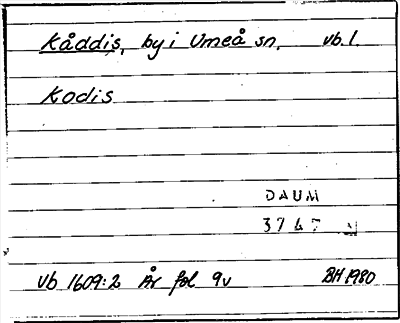 Kåddis, by i Umeå sn. vb.l.
Kodis
DAUM
3767 N
Vb 1609:2 År fol 9v BH 1980